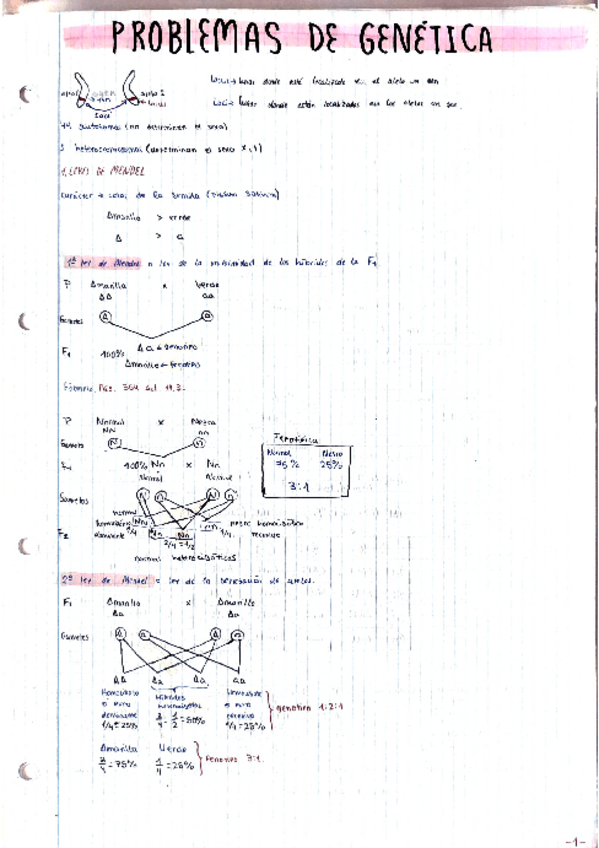 PROBLEMAS DE GENÉTICA
Locus → lugar donde está localizado en el alelo un gen
Loci → lugar donde están localizados
44 autosomas (no determinan el sexo)
heterocromosomas (determinan el sexo X, Y)
1. LEYES DE MENDEL
Carácter → color de la semilla (Pisum sativum)
Amarilla > verde
A > a
1ª ley de Mendel = ley de la uniformidad de los híbridos de la F1
P Amarilla x Verde
AA aa
Gametos A a
F1 100% Aa ← genotipo
Amarilla ← fenotipo
Ejemplo. Pág. 364 act 19.3.
P Normal x Negra
NN nn
Gametos N n
F1 100% Nn x Nn
Normal Normal
Fenotípica
Normal Negro
75% 25%
3:1
Gametos N n N n
normal
homocigótico NN Nn Nn nn negro homocigótico
F2 dominante 1/4 2/4 = 1/2 1/4 recesivo
normal heterocigóticos
2ª ley de Mendel = ley de la segregación de
F1 Amarilla x Amarilla
Aa Aa
Gametos A a A a
AA Aa Aa aa
Homocigoto o puro dominante 1/4 = 25%
Híbridos 2/4 = 1/2 = 50%
o puro recesivo 1/4 = 25%
genotipo 1:2:1
Amarilla Verde
3/4 = 75% 1/4 = 25% Fenotipo 3:1.
-1-